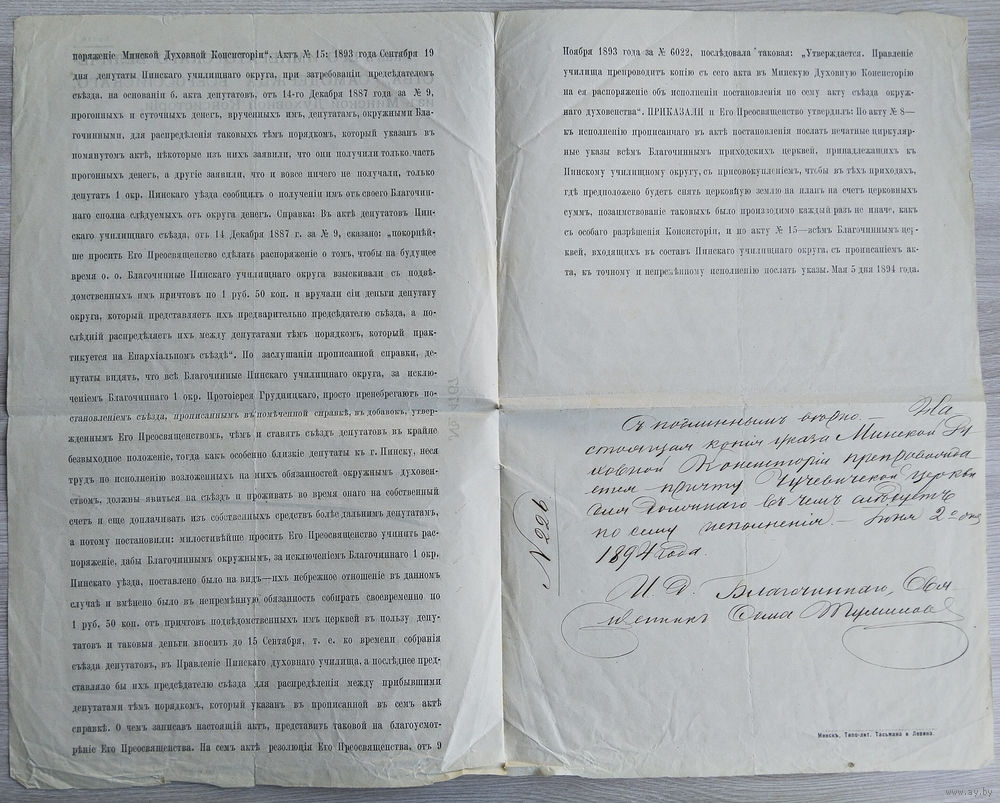 поряженіе Минской Духовной Консисторіи“. Актъ № 15: 1893 года Сентября 19
дня депутаты Пинскаго училищнаго округа, при затребованіи предсѣдателемъ
съѣзда, на основаніи б. акта депутатовъ, отъ 14-го Декабря 1887 года за № 9,
прогонныхъ и суточныхъ денегъ, врученныхъ имъ, депутатамъ, окружными Бла-
гочинными, для распредѣленія таковыхъ тѣмъ порядкомъ, который указанъ въ
помянутомъ актѣ, нѣкоторые изъ нихъ заявили, что они получили только часть
прогонныхъ денегъ, а другіе заявили, что и вовсе ничего не получали, только
депутатъ 1 окр. Пинскаго уѣзда сообщилъ о полученіи имъ отъ своего Благочин-
наго сполна слѣдуемыхъ отъ округа денегъ. Справка: Въ актѣ депутатовъ Пин-
скаго училищнаго съѣзда, отъ 14 Декабря 1887 г. за № 9, сказано: „покорнѣй-
ше просить Его Преосвященство сдѣлать распоряженіе о томъ, чтобы на будущее
время о. о. Благочинные Пинскаго училищнаго округа взыскивали съ подвѣ-
домственныхъ имъ причтовъ по 1 руб. 50 коп. и вручали сіи деньги депутату
округа, который представляетъ ихъ предварительно предсѣдателю съѣзда, а по-
слѣдній распредѣляетъ ихъ между депутатами тѣмъ порядкомъ, который прак-
тикуется на Епархіальномъ съѣздѣ“. По заслушаніи прописанной справки, де-
путаты видятъ, что всѣ Благочинные Пинскаго училищнаго округа, за исклю-
ченіемъ Благочиннаго 1 окр. Протоіерея Грудницкаго, просто пренебрегаютъ по-
становленіемъ съѣзда, прописаннымъ въ помѣченной справкѣ, въ добавокъ, утвер-
жденнымъ Его Преосвященствомъ, чѣмъ и ставятъ депутатовъ въ крайне
безвыходное положеніе, тогда какъ особенно близкіе депутаты къ г. Пинску, неся
трудъ по исполненію возложенныхъ на нихъ обязанностей окружнымъ духовен-
ствомъ, должны явиться на съѣздъ и проживать во время онаго на собственный
счетъ и еще доплачивать изъ собственныхъ средствъ болѣе дальнимъ депутатамъ,
а потому постановили: милостивѣйше просить Его Преосвященство учинять рас-
поряженіе, дабы Благочиннымъ окружнымъ, за исключеніемъ Благочиннаго 1 окр.
Пинскаго уѣзда, поставлено было на видъ—ихъ небрежное отношеніе въ данномъ
случаѣ и вмѣнено было въ непремѣнную обязанность собирать своевременно по
1 руб. 50 коп. отъ причтовъ подвѣдомственныхъ имъ церквей въ пользу депу-
татовъ и таковыя деньги вносить до 15 Сентября, т. е. ко времени собранія
съѣзда депутатовъ, въ Правленіе Пинскаго духовнаго училища, а послѣднее пред-
ставляло бы ихъ предсѣдателю съѣзда для распредѣленія между прибывшими
депутатами тѣмъ порядкомъ, который указанъ въ прописанной въ семъ актѣ
справкѣ. О чемъ записавъ настоящій актъ, представить таковой на благоусмот-
рѣніе Его Преосвященства. На семъ актѣ резолюція Его Преосвященства, отъ 9
Ноября 1893 года за № 6022, послѣдовала таковая: „Утверждается. Правленіе
училища препроводитъ копію съ сего акта въ Минскую Духовную Консисторію
на ея распоряженіе объ исполненіи постановленія по сему акту съѣзда окруж-
наго духовенства“. ПРИКАЗАЛИ и Его Преосвященство утвердилъ: По акту № 8—
къ исполненію прописаннаго въ актѣ постановленія послать печатные циркуляр-
ные указы всѣмъ Благочиннымъ приходскихъ церквей, принадлежащихъ къ
Пинскому училищному округу, съ присовокупленіемъ, чтобы въ тѣхъ приходахъ,
гдѣ предположено будетъ снять церковную землю на планъ на счетъ церковныхъ
суммъ, позаимствованіе таковыхъ было производимо каждый разъ не иначе, какъ
съ особаго разрѣшенія Консисторіи, и по акту № 15—всѣмъ Благочиннымъ цер-
квей, входящихъ въ составъ Пинскаго училищнаго округа, съ прописаніемъ ак-
та, къ точному и непремѣнному исполненію послать указы. Мая 5 дня 1894 года.
Съ подлиннымъ вѣрно. — На
стоящая копія указа Минской Ду
ховной Консисторіи препровожда
ется причту Чучевичской церкви
для должнаго въ чемъ слѣдуетъ
по сему исполненія. — Іюня 2го дня
1894 года.
И. д. Благочиннаго, Свя
щенникъ Ѳома
№ 226
Минскъ, Типо-лит. Тасьмана и Левина.
www.ay.by